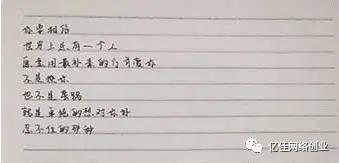 你要相信
世界上总有一个人
愿意用最朴素的方式爱你
不是撩你
也不是套路
就是单纯的想对你好
忍不住的那种
亿佳网络创业